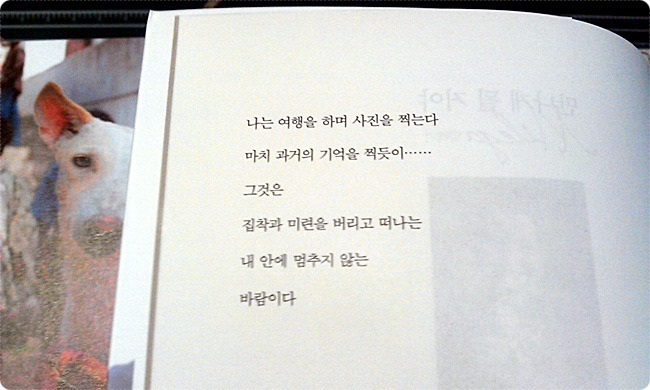 나는 여행을 하며 사진을 찍는다
마치 과거의 기억을 찍듯이……
그것은
집착과 미련을 버리고 떠나는
내 안에 멈추지 않는
바람이다